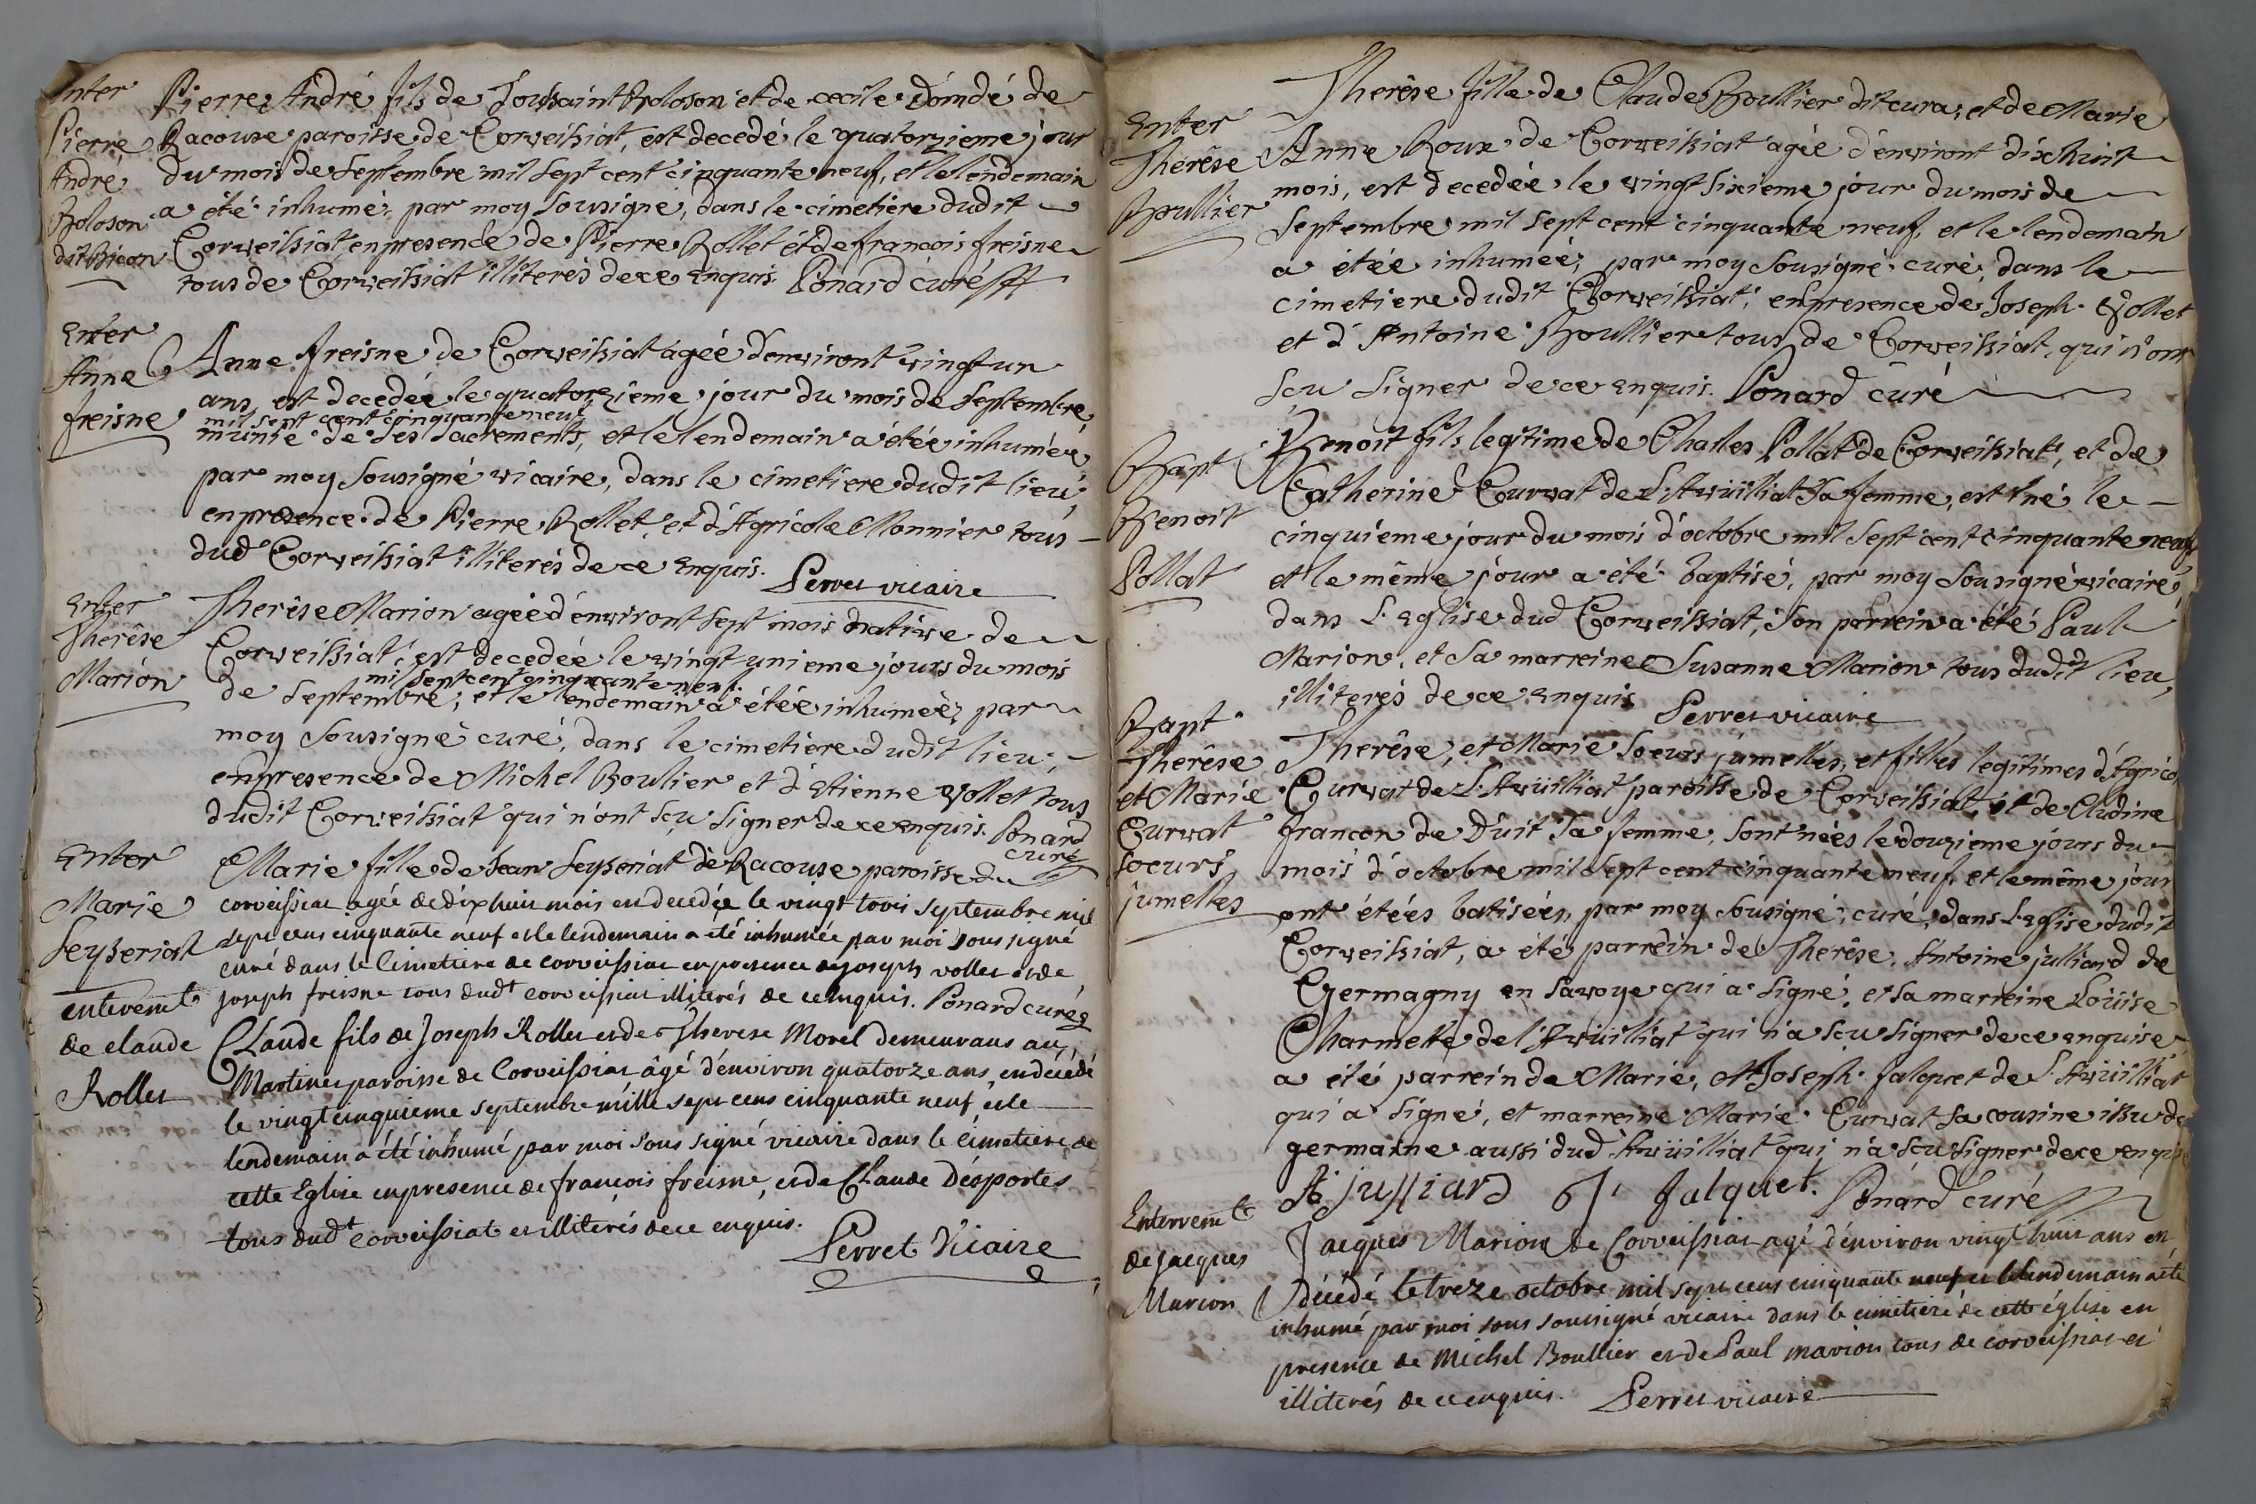 Enter
Pierre
André
Boloson
dit Bicon
Pierre André fils de Toussaint Boloson et de cecile Domdé de
Racouse paroisse de Corveissiat, est decedé le quatorzieme jour
du mois de septembre mil sept cent cinquante neuf, et le lendemain
a été inhumé, par moy sousigné, dans le cimetiere dudit
Corveissiat, en presence de Pierre Rollet et de francois freisne
tous de Corveissiat illiterés de ce enquis. Ponard curé
Enter
Anne
freisne
Anne freisne de Corveissiat agée d'environt vingt un
ans, est decedée le quatorzieme jour du mois de septembre,
mil sept cent cinquante neuf
munie de ses sacrements, et le lendemain a étée inhumée
par moy sousigné vicaire, dans le cimetiere dudit lieu,
en presence de Pierre Rollet, et d'Agricole Monnier tous
dud Corveissiat illiterés de ce enquis.
Perret vicaire
Enter
Therêse
Marion
Therêse Marion agée d'environt sept mois native de
Corveissiat, est decedée le vingt unieme jours du mois
mil sept cent cinquante neuf
de septembre, et le lendemain a étée inhumée, par
moy sousigné curé, dans le cimetiere dudit lieu,
en presence de Michel Boulier et d'Etienne Vollet tous
dudit Corveissiat qui n'ont scu signer de ce enquis. Ponard
curé
Enter
Marie
Seyseriat
Marie fille de Jean Seyseriat de Racouse paroisse du
corveissiat agée de dix huit mois en decedée le vingt trois septembre mil
sept cens cinquante neuf et le lendemain a été inhumée par moi sous signé
curé dans le cimetiere de corveissiat en presence de joseph vollet et de
joseph freisne tous dudt corveissiat illiterés de ce enquis. Ponard curé
enteremt
de claude
Rollet
Claude fils de Joseph Rollet et de Therese Morel demeurans au
Martinet paroisse de Corveissiat âgé d'environ quatorze ans, en décédé
le vingt cinquieme septembre mille sept cens cinquante neuf et le
lendemain a été inhumé par moi sous signé vicaire dans le cimetiere de
cette Eglise en presence de françois freisne, et de Claude Desportes
tous dudt corveissiat et illiterés de ce enquis.
Perret Vicaire
Enter
Therêse
Boullier
Therêse fille de Claude Boullier dit cura, et de Marie
Anne Roux de Corveissiat agée d'environt dixhuit
mois, est decedée le vingt sixieme jour du mois de
septembre mil sept cent cinquante neuf, et le lendemain
a étée inhumée, par moy sousigné curé, dans le
cimetiere dudit Corveissiat, en presence de Joseph Vollet
et d'Antoine Boullier tous de Corveissiat, qui n'ont
scu signer de ce enquis. Ponard curé
Bapt
Benoit
Pollat
Benoit fils legitime de Charles Pollat de Corveissiat, et de
Catherine Curvat de L'Avüilliat sa femme, est né le
cinquieme jour du mois d'octobre mil sept cent cinquante neuf
et le même jour a été baptisé, par moy sousigné vicaire,
dans L'Eglise dud Corveissiat, son parrein a été Paul
Marion, et sa marreine Susanne Marion tous dudit lieu,
illiterés de ce enquis
Perret vicaire
Bapt
Therêse
et Marie
Curvat
soeurs
jumelles
Therêse, et Marie soeurs jumelles, et filles legitimes d'Agrico
Curvat de L'Avüilliat paroisse de Corveissiat, et de Cludine
francon de Duit sa femme, sont nées le douzieme jours du
mois d'octobre mil sept cent cinquante neuf, et le même jour
ont étées batisées, par moy sousigné, curé, dans L'eglise dudit
Corveissiat, a été parrein de Therêse, Antoine julliard de
Germagny en Savoye qui a signé, et sa marreine Loüise
Charmette de l'Avüilliat qui n'a scu signer de ce enquise,
a été parrein de Marie, Mr Joseph falquet de L'Avüilliat
qui a signé, et marreine Marie Curvat sa cousine issu de
germaine aussi dud Avüilliat qui n'a scu signer de ce enquise
A julliard J falquet. Ponard Curé
Enterremt
de Jacques
Marion
Jacques Marion de Corveissiat agé d'environ vingt huit ans en
décédé le treze octobre mil sept cens cinquante neuf et le lendemain a été
inhumé par moi sous soussigné vicaire dans le cimetiere de cette église en
presence de Michel Boullier et de Paul marion tous de corveissiat et
illiterés de ce enquis. Perret vicaire